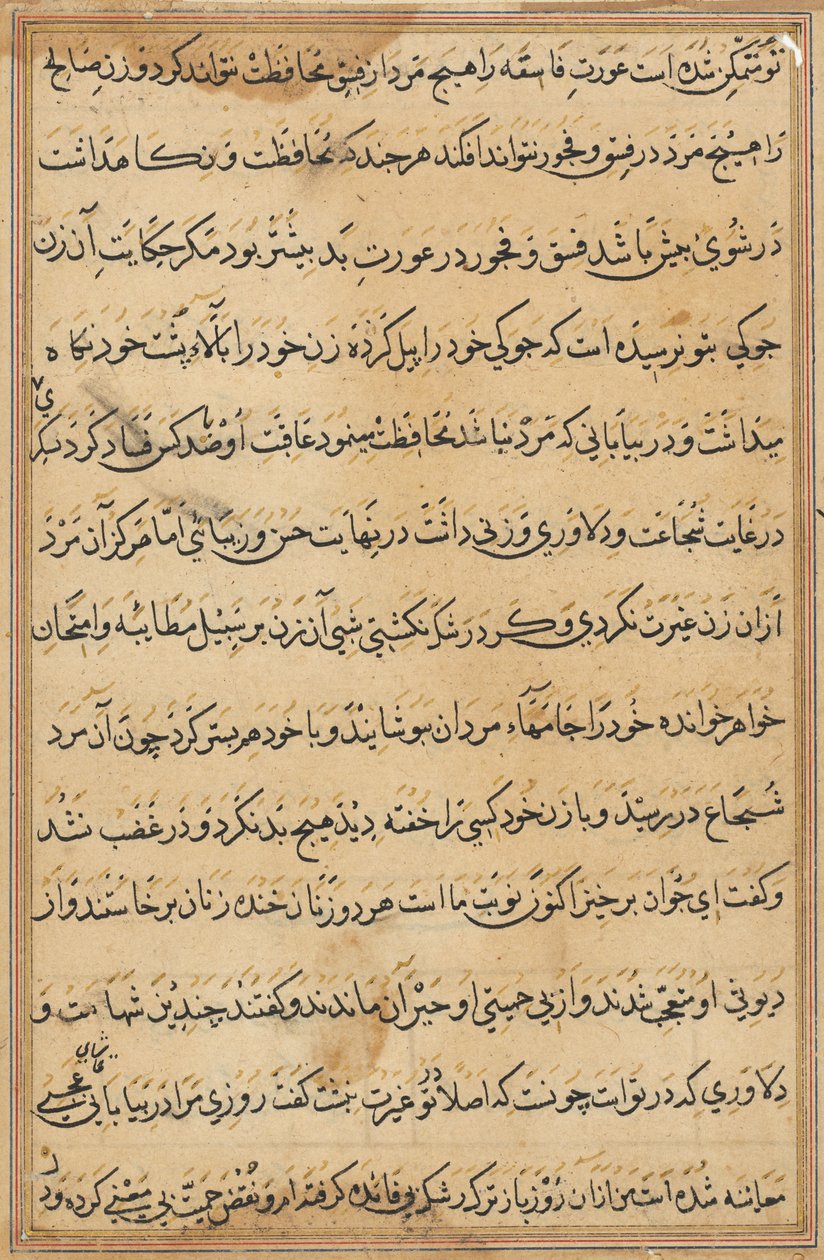 تو متمکّن شده است عورتِ فاسقه را هیچ مرد از فسق محافظت نتواند کرد و زن صالح
را هیچ مرد در فسق و فجور نتواند افکند هر چند که محافظت و نکاهداشت
در شوی بیش باشد فسق و فجور در عورتِ بد بیشتر بود مکر حکایتِ آن زن
جوکی بتو نرسیده است که جوکی خود را پیل کرده زنِ خود را بالاء پشت خود نکاه
میداشت و در بیابانی که مرد نباشد محافظت مینمود عاقبت او با صد کس فساد کرد
در غایت شجاعت و دلاوری و زنی داشت در نهایت حسن و زیبائی امّا هرکز آن مرد
ازان زن غیرت نکردی و کرد رشک نکشتی شبی آن زن بر سبیل مطایبه و امتحان
خواهر خوانده خود را جامهاء مردان بپوشانید و با خود هم بستر کرد چون آن مرد
شجاع در رسید و با زن خود کسی را خفته دید هیچ بد نکرد و در غضب نشد
و کفت ای جوان برخیز اکنون نوبت ما است هر دو زنان خنده زنان برخاستند و از
دیوثی او متعجّب شدند و از بی حمیتی او حیران ماندند و کفتند چندین شهامت و
دلاوری که در تو است چونست که اصلا در تو غیرت نیست کفت روزی مرا در بیابانی عجبی تماشای
معاینه شده است من ازان روز باز ترک رشک بی فائده کرفته‌ام و نقض حمیّت بی معنی کرده و